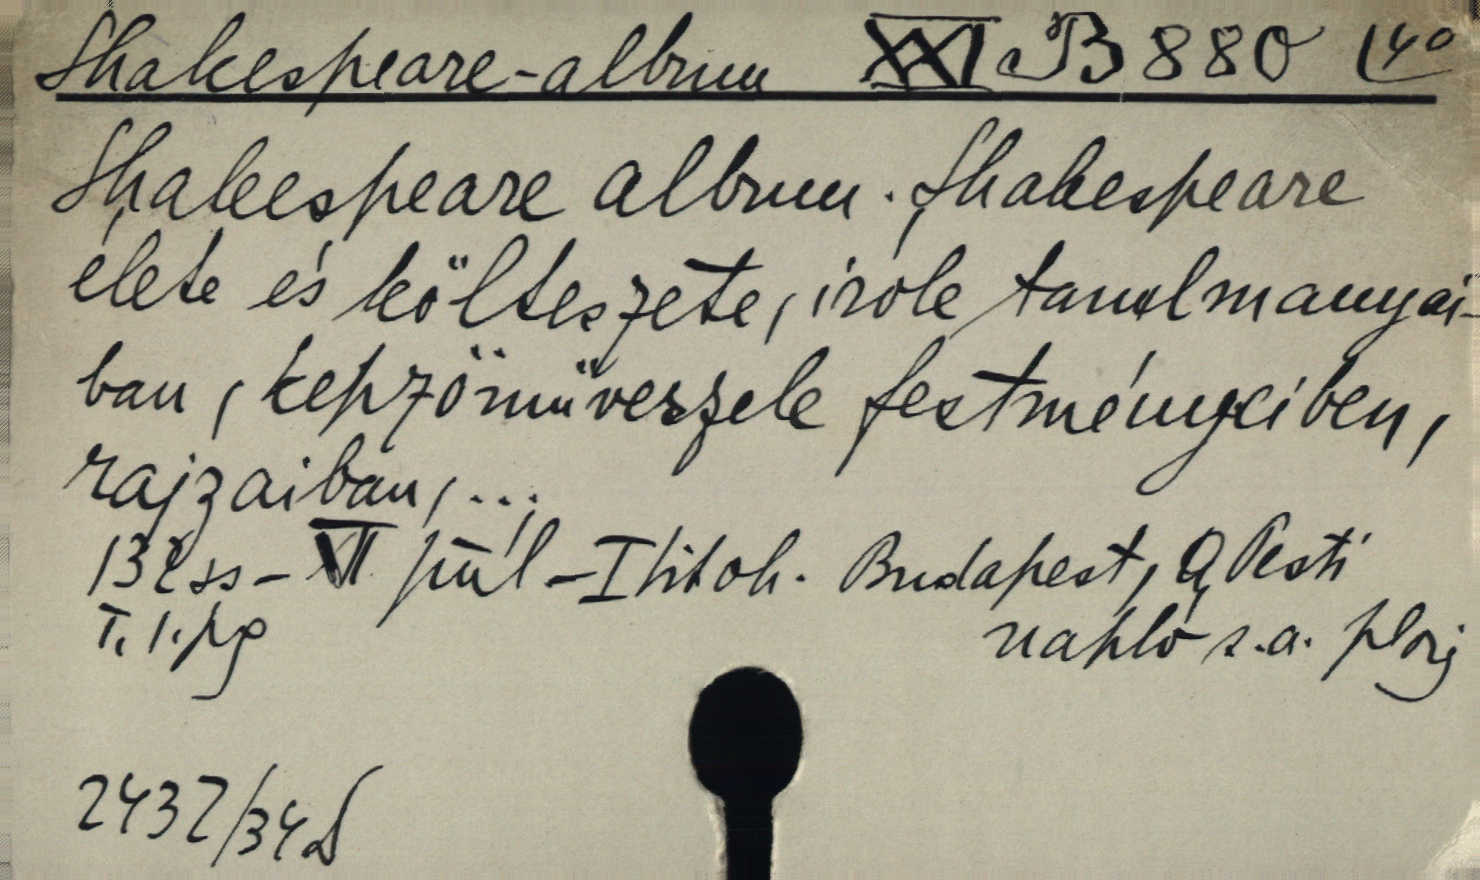 Shakespeare-album XXI B 880 (4°
Shakespeare album. Shakespeare
élete és költeszete, irók tanulmanyai-
ban, kepzőművészek festményeiben,
rajzaiban, ...
132 ss - XII
Budapest, a Pesti
T. 1. pg
napló s.a.
2432/34